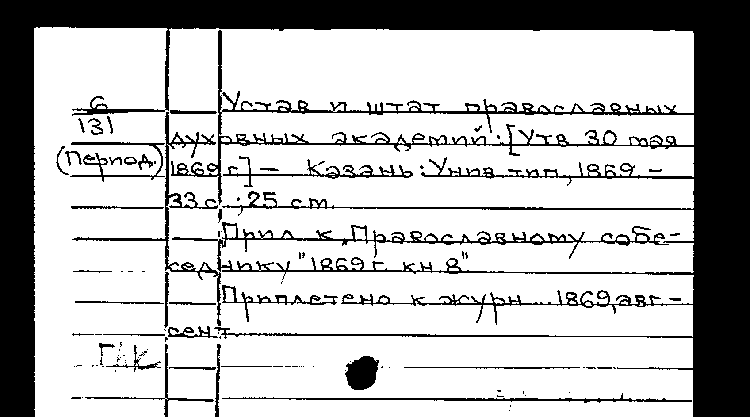 6
131
(Период.)
Устав и штат православных
духовных академий: [Утв. 30 мая
1869 г.] — Казань: Унив. тип., 1869. —
33 с.; 25 см.
Прил. к „Православному собе-
седнику" 1869 г. кн. 8"
Приплетено к журн. .. 1869, авг. –
сент.
ГАК